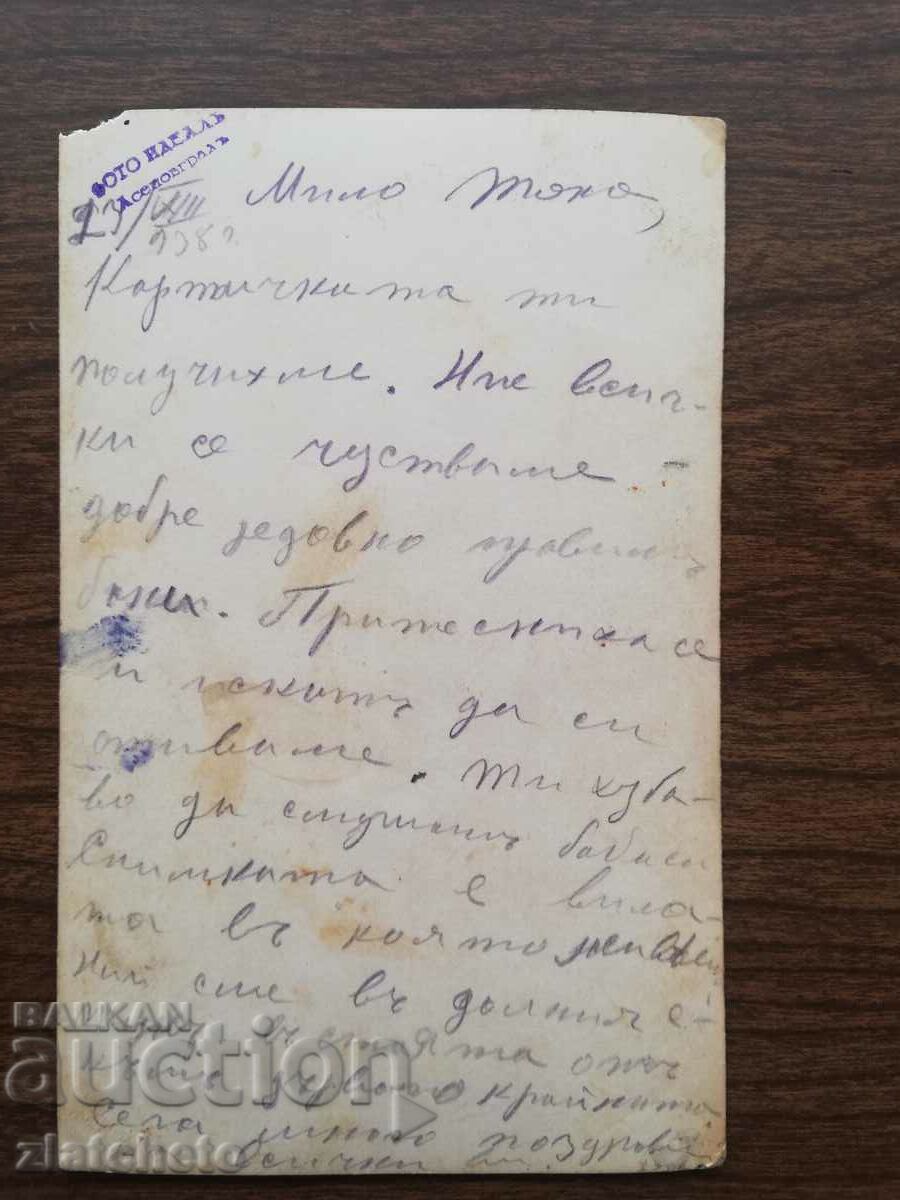 ФОТО ИДЕАЛЪ
Асеновградъ
23/VIII Мило
938 г.
Картичката ти
получихме. Ние всич-
ки се чуствыме -
добре редовно правимъ
бании. Притесниха се
и искатъ да си
отиваме. Ти хуба-
во да слушашъ
Снимката е вила-
та въ която живѣем
Ний сме въ долния е-
въ стаята
крайната
Сега много поздрави
всички
BALKAN
auction
zlatcheto